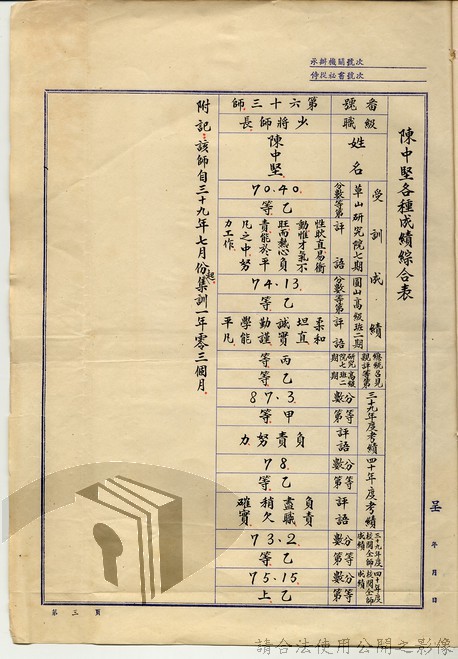 承辦機關號次
侍從祕書號次
陳中堅各種成績綜合表
番號
第六十三師
級職
少將師長
姓名
陳中堅
受訓成績
草山研究院七期
分數
70.40.
等第
乙等
評語
性耿直易衝
動惟才氣不
旺而熱心負
責能於平
凡之中努
力工作
圓山高級班二期
分數
74.13.
等第
乙等
評語
柔和
坦直
誠實
勤謹
學能
平凡
總統召見
親評等第
丙等
研究院七期
高級班二期
乙等
三十九年度考績
分數
87.3
等第
甲等
評語
負責努力
四十年度考績
分數
78.
等第
乙等
評語
負責
盡職
稍欠
確實
三十九年度
校閱全師
成績
分數
73.2.
等第
乙等
四十年度
校閱全師
成績
分數
75.15.
等第
乙上
附記：該師自三十九年七月份起集訓一年零三個月
呈
年
月
日
第三頁
請合法使用公開之影像